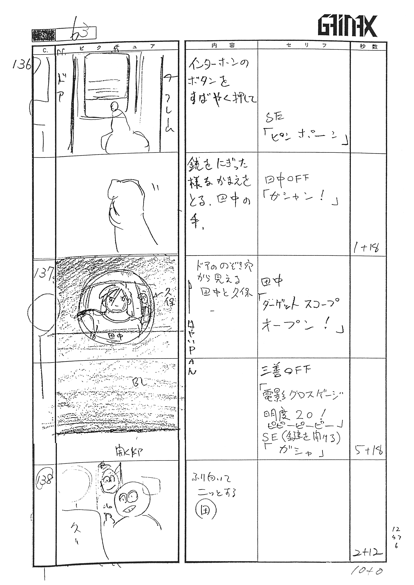 GAINAX
C.
ピクチュア
内容
セリフ
秒数
136
ドア
フレーム
インターホンの
ボタンを
すばやく押して
SE
「ピンポーン」
銃をにぎった
様なかまえを
とる、田中の
手。
田中OFF
「ガシャン！」
1+18
137
久保
田中
ドアののぞき穴
から見える
田中と久保
田中
「ターゲットスコープ
オープン！」
BL
三善OFF
「電影クロスゲージ
明度20！
ピピーピーピー」
SE(鍵を開ける)
「ガシャ」
5+18
138
ふり向いて
ニッとする
田
2+12
10+0